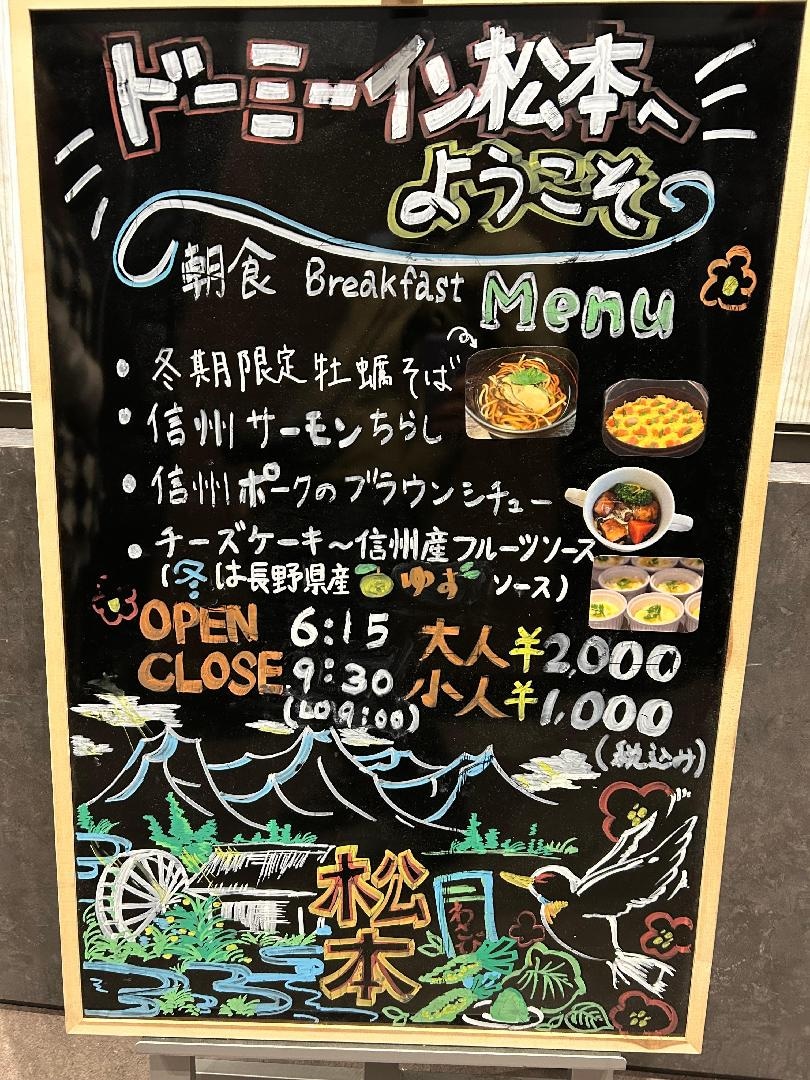 ドーミーイン松本へ
ようこそ
朝食 Breakfast Menu
・冬期限定牡蠣そば
・信州サーモンちらし
・信州ポークのブラウンシチュー
・チーズケーキ～信州産フルーツソース
(冬は長野県産ゆずソース)
OPEN 6:15
CLOSE 9:30
(LO 9:00)
大人¥2,000
小人¥1,000
(税込み)
松本
わさび